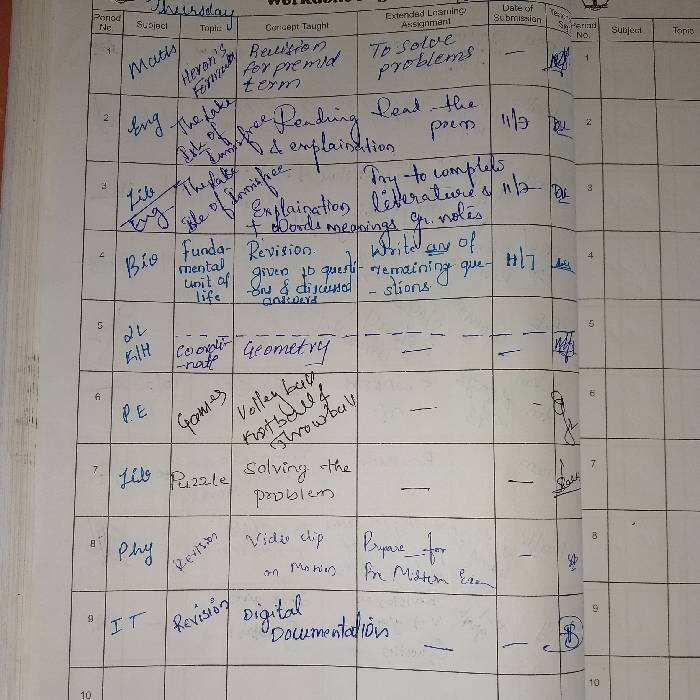 Thursday
Period No.
Subject
Topic
Concept Taught
Extended Learning/
Assignment
Date of
Submission
1
Maths
Heron's
Formula
Revision
for premid
term
To solve
problems
—
2
Eng
The Lake
Isle of
Innisfree
Reading
& explaination
Read the
poem
11/7
3
Lib
Eng
The Lake
Isle of Innisfree
Explaination
+ words meanings
Try to complete
literature's
gr. notes
11/7
4
Bio
Funda-
mental
unit of
life
Revision
given to questi-
ons & discussed
answers
Write any of
remaining que-
-stions.
11/7
5
2L
K/H
Coordi-
-nate
Geometry
—
—
6
P.E
Games
Volleyball
Football &
Throwball
—
-
7
Lib
Puzzle
Solving the
problem
—
—
8
Phy
Revision
Video clip
on Motion
Prepare for
Pre Midterm Exam
-
9
IT
Revision
Digital
Documentation
—
—
10
Period
No.
Subject
Topic
1
2
3
4
5
6
7
8
9
10